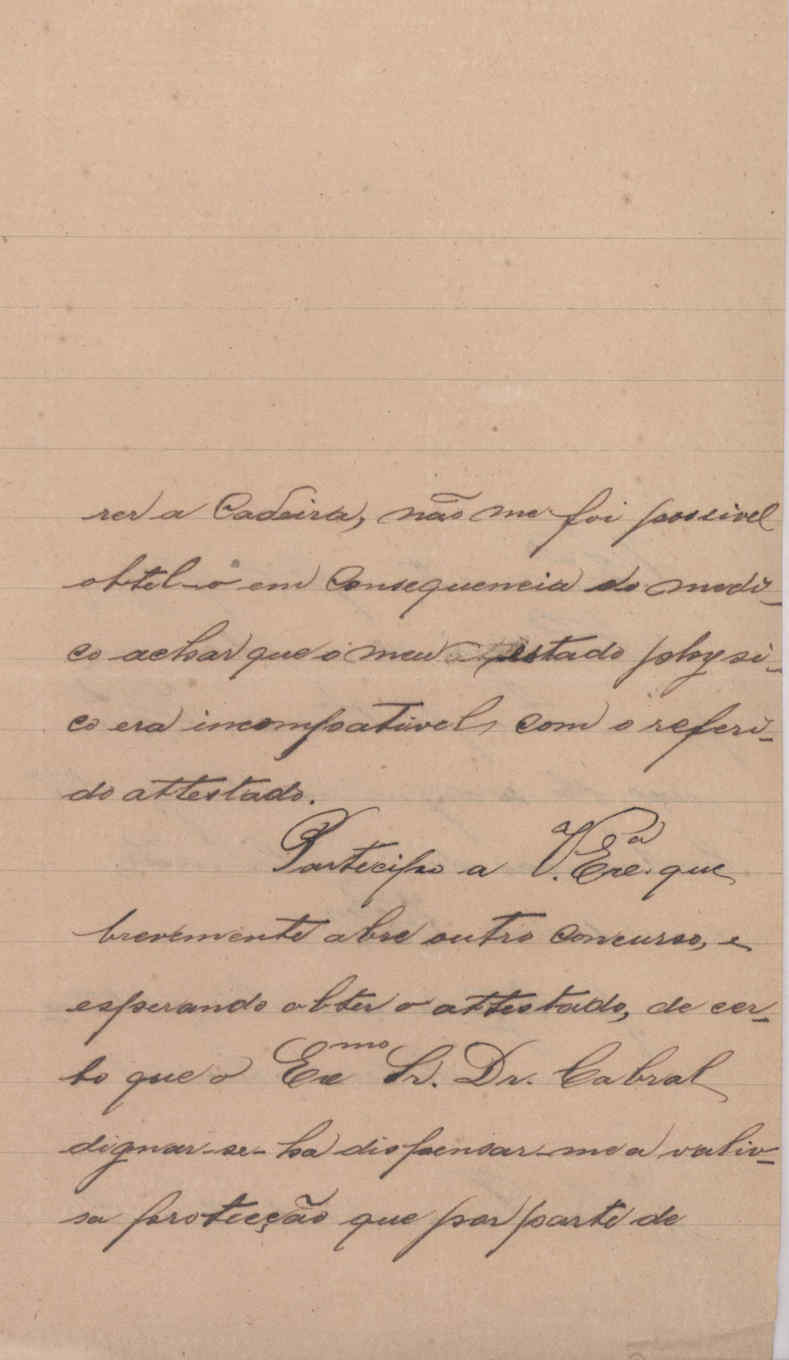 rer a Cadeira, não me foi possivel
obtel-o em Consequencia do medi-
co achar que o meu estado physi-
co era incompativel, com o referi-
do attestado.
Partecipo a V.ª Exc.ª que
brevemente abre outro concurso, e
esperando obter o attestado, de cer-
to que o Exmo Sr. Dr. Cabral
dignar-se-ha dispensar-me a valio-
sa protecção que por parte de